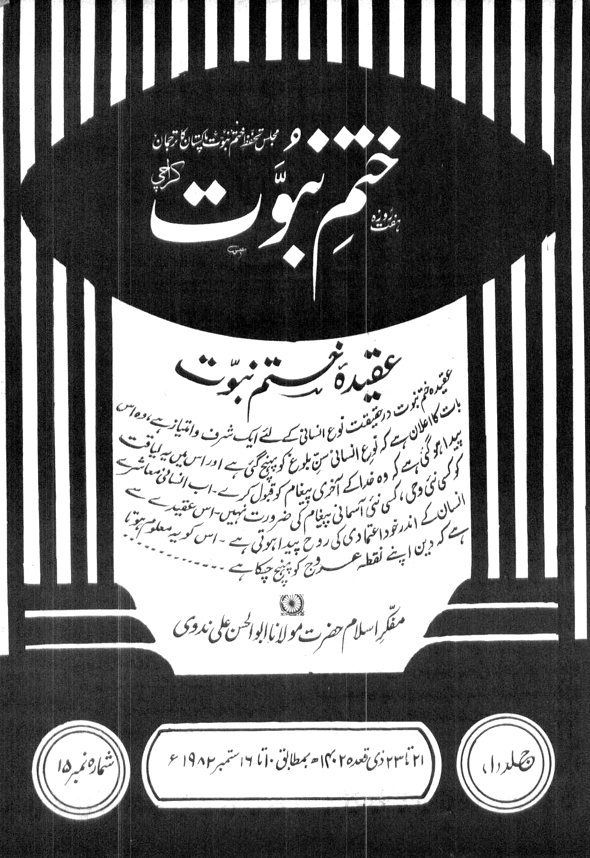 مجلس تحفظ ختم نبوت پاکستان کا ترجمان
ہفت روزہ
ختمِ نبوّت
کراچی
عقیدۂ ختم نبوّت
عقیدہ ختم نبوت درحقیقت نوع انسانی کے لئے ایک شرف و امتیاز ہے، وہ اس
بات کا اعلان ہے کہ نوع انسانی سنِ بلوغ کو پہنچ گئی ہے اور اس میں یہ لیاقت
پیدا ہو گئی ہے کہ وہ خدا کے آخری پیغام کو قبول کرے۔ اب انسانی معاشرے
کو کسی نئی وحی، کسی نئی آسمانی پیغام کی ضرورت نہیں۔ اس عقیدے سے
انسان کے اندر خود اعتمادی کی روح پیدا ہوتی ہے۔ اس کو یہ معلوم ہوتا
ہے کہ دین اپنے نقطہ عروج کو پہنچ چکا ہے ............
مفکرِ اسلام حضرت مولانا ابوالحسن علی ندوی
جلد (۱)
۲۱ تا ۲۳ ذی قعدہ ۱۴۰۲ھ بمطابق ۱۰ تا ۱۶ ستمبر ۱۹۸۲ء
شمارہ نمبر ۱۵